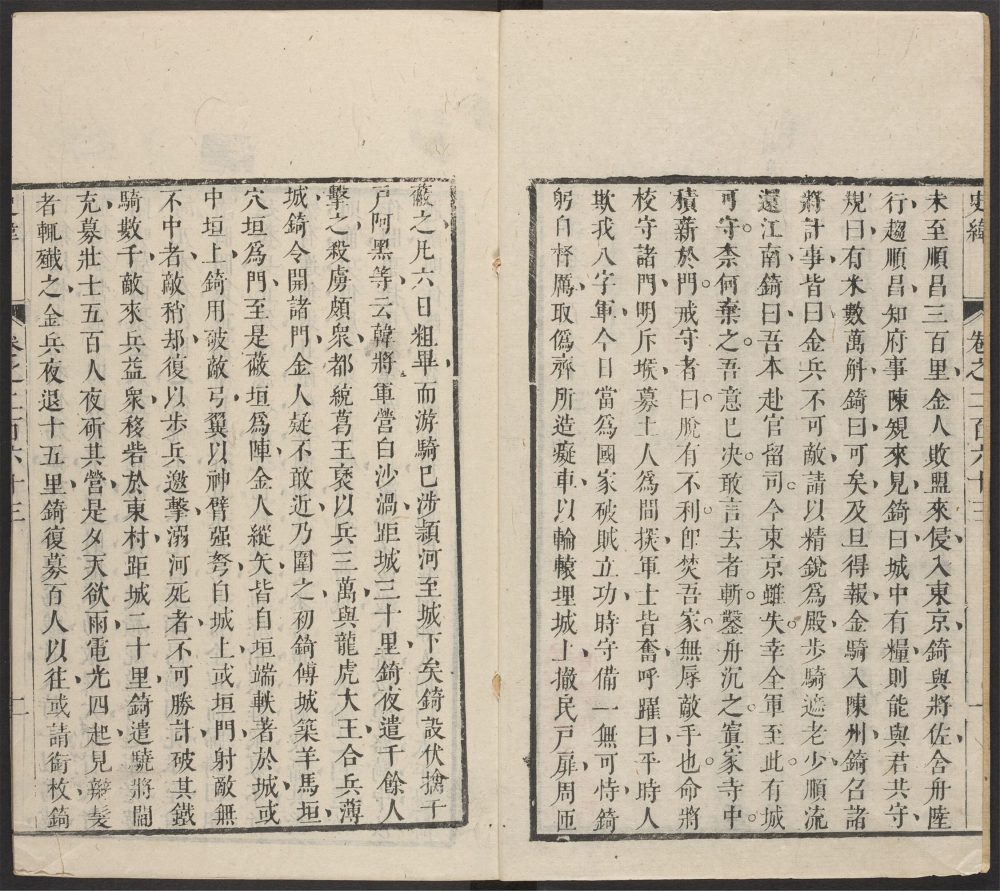 史緯
卷之二百六十三
一
未至順昌三百里金人敗盟來侵入東京錡與將佐舍舟陸
行趨順昌知府事陳規來見錡曰城中有糧則能與君共守
規曰有米數萬斛錡曰可矣及旦得報金騎入陳州錡召諸
將計事皆曰金兵不可敵請以精銳爲殿步騎遮老少順流
還江南錡曰吾本赴官留司今東京雖失幸全軍至此有城
可守柰何棄之吾意已决敢言去者斬鑿舟沉之寘家寺中
積薪於門戒守者曰脫有不利卽焚吾家無辱敵手也命將
校守諸門明斥堠募土人爲間探軍士皆奮呼躍曰平時人
欺我八字軍今日當爲國家破賊立功時守備一無可恃錡
躬自督厲取僞齊所造癡車以輪轅埋城上撤民戸扉周匝
蔽之凡六日粗畢而游騎已涉潁河至城下矣錡設伏擒千
戸阿黑等云韓將軍營白沙渦距城三十里錡夜遣千餘人
擊之殺虜頗衆都統葛王褎以兵三萬與龍虎大王合兵薄
城錡令開諸門金人疑不敢近乃圍之初錡傅城築羊馬垣
穴垣爲門至是蔽垣爲陣金人縱矢皆自垣端軼著於城或
中垣上錡用破敵弓翼以神臂强弩自城上或垣門射敵無
不中者敵稍却復以步兵邀擊溺河死者不可勝計破其鐵
騎數千敵來兵益衆移砦於東村距城二十里錡遣驍將閻
充募壯士五百人夜斫其營是夕天欲雨電光四起見辮髮
者輒殱之金兵夜退十五里錡復募百人以往或請銜枚錡
卷之二百六十三
二